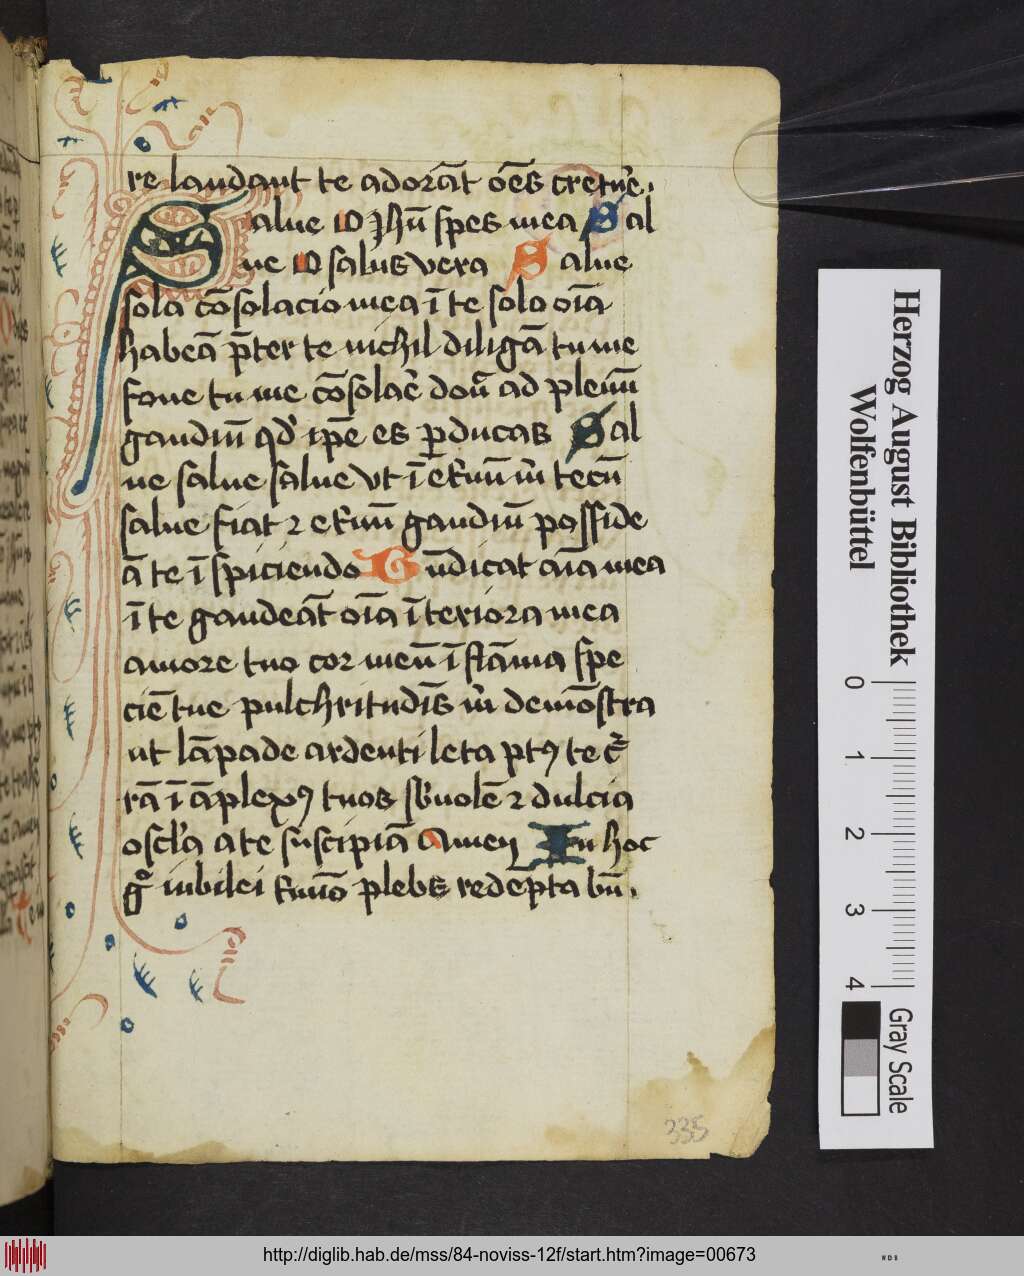 re laudant te adorāt oēs cretūe.
Salue O Jhū spes mea Sal
ue O salus vera Salue
sola cōsolacio mea ī te solo oīa
habeā p̄ter te nichil diligā tu me
foue tu me cōsolare don̄ ad plenū
gaudiū qd ipē es ꝑducas Sal
ue salue salue vt ī et̄nū m̄ tecū
salue fiat ⁊ et̄nū gaudiū posside
ā te īspiciendo Iūdicat aīa mea
ī te gaudeāt oīa īteriora mea
amore tuo cor meū īflāma spe
ciē tue pulchritudīs m̄ demōstra
ut lāpade ardenti leta
rā ī āplexꝰ tuos suolē ⁊ dulcia
oscl̄a a te suscipiā Amen In hoc
iubilei plebs redēpta
335
Herzog August Bibliothek
Wolfenbüttel
0 1 2 3 4
Gray Scale
http://diglib.hab.de/mss/84-noviss-12f/start.htm?image=00673
WDB